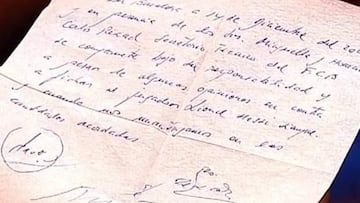 En Barcelona a 14 de Diciembre del 20
y en presencia de los Sres. Minguella y Horacio
Carles Rexach Secretario Técnico del F.C.B
se compromete bajo su responsabilidad y
a pesar de algunas opiniones en contra
a fichar al jugador Lionel Messi siempre
y cuando nos mantengamos en las
cantidades acordadas